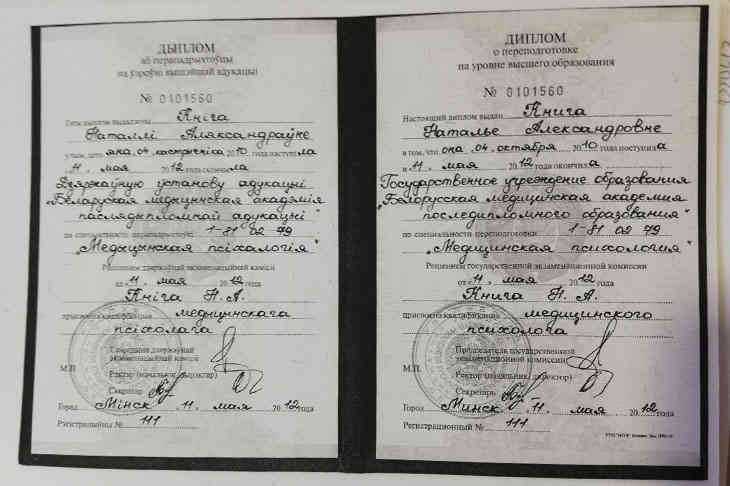 ДЫПЛОМ
аб перападрыхтоўцы
на ўзроўні вышэйшай адукацыі
№ 0101560
Гэты дыплом выдадзены Кніга
Наталлі Аляксандраўне
у тым, што яна, 04 кастрычніка 2010 года паступіла
11 мая 2012 скончыла
Дзяржаўную ўстанову адукацыі
„Беларуская медыцынская акадэмія
паслядыпломнай адукацыі"
па спецыяльнасці перападрыхтоўкі 1-81 02 79
„Медыцынская псіхалогія"
Рашэннем дзяржаўнай экзаменацыйнай камісіі
ад 11 мая 2012 года
Кніга Н.А.
прысвоена кваліфікацыя медыцынскага
псіхолага
Старшыня дзяржаўнай
экзаменацыйнай камісіі
М.П.
Рэктар (начальнік, дырэктар)
Сакратар
Горад Мінск 11 мая 2012 года
Рэгістрацыйны № 111
ДИПЛОМ
о переподготовке
на уровне высшего образования
№ 0101560
Настоящий диплом выдан Книга
Наталье Александровне
в том, что она, 04 октября 2010 года поступила
и 11 мая 2012 окончила
Государственное учреждение образования
„Белорусская медицинская академия
последипломного образования"
по специальности переподготовки 1-81 02 79
„Медицинская психология"
Решением государственной экзаменационной комиссии
от 11 мая 2012 года
Книга Н.А.
присвоена квалификация медицинского
психолога
Председатель государственной
экзаменационной комиссии
М.П.
Ректор (начальник, директор)
Секретарь
Город Минск 11 мая 2012 года
Регистрационный № 111